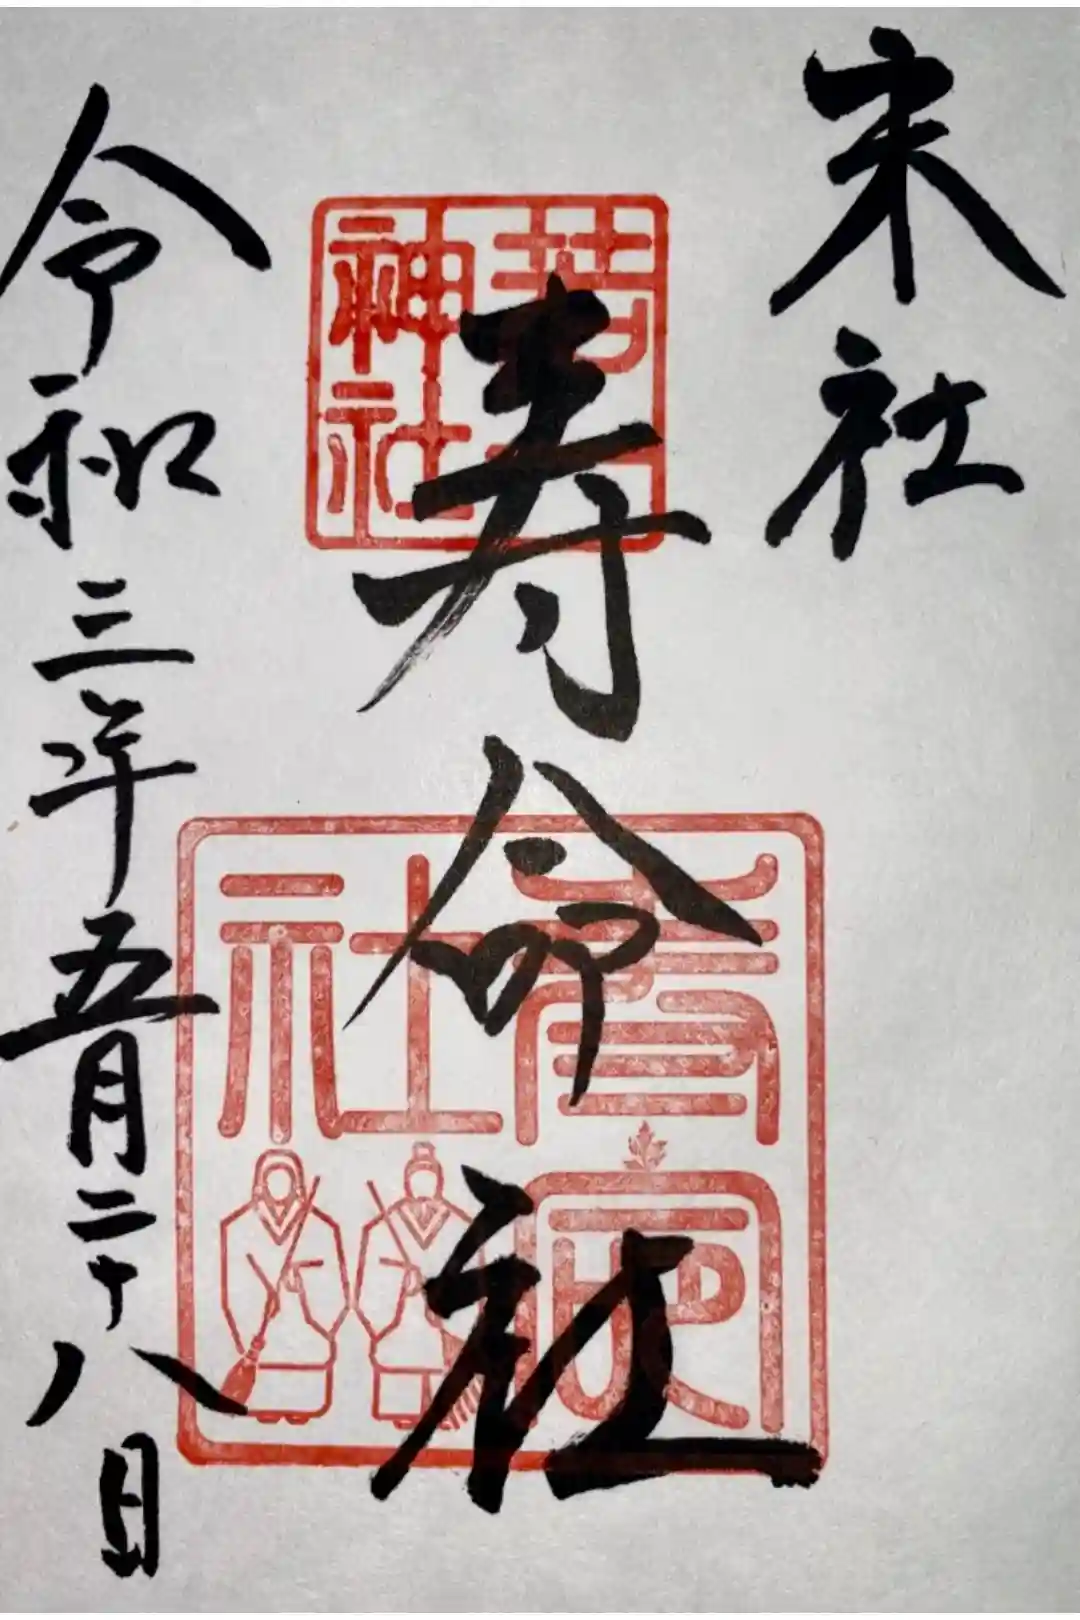 末社
若一
神社
寿命社
壽命
社
令和三年五月二十八日